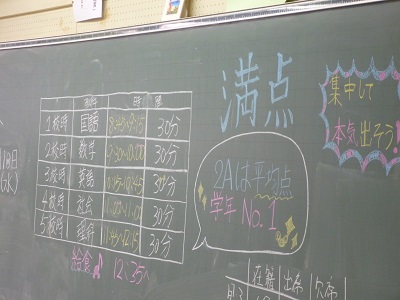 満点
集中して
本気出そう!
2Aは平均点
学年 No.1
1校時 国語 8:45~9:15 30分
2校時 数学 9:30~10:00 30分
3校時 英語 10:15~10:45 30分
4校時 社会 30分
5校時 理科 11:45~12:15 30分
給食♪ 12:35~
在籍 出席 欠席